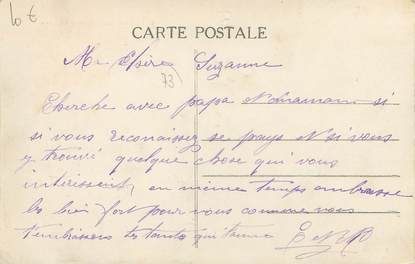 10 €
CARTE POSTALE
Ma Chère Suzanne
73
Cherche avec papa et maman si
si vous reconaissez se pays et si vous
y trouvé quelque chose qui vous
intéressent, en même temps embrasse
les bien fort pour vous comme nous
t'embrassons tes tantes qui t'aime